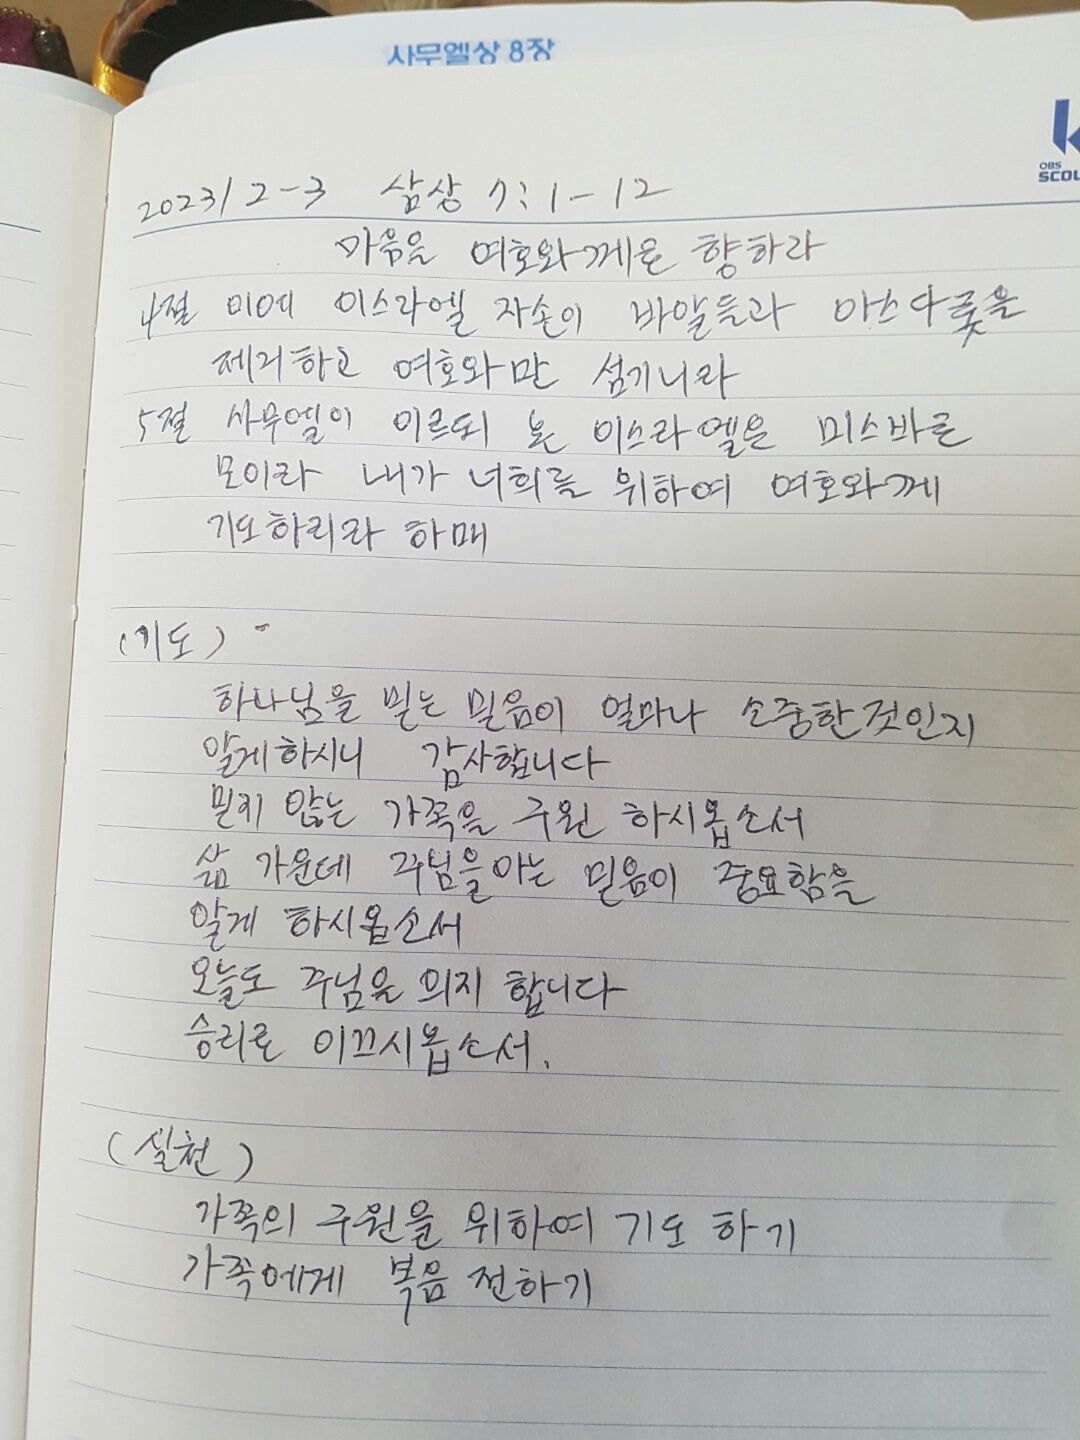 사무엘상 8장
OBS
SCOU
2023/2-3 삼상 7:1-12
마음을 여호와께로 향하라
4절 이에 이스라엘 자손이 바알들과 아스다롯을
제거하고 여호와만 섬기니라
5절 사무엘이 이르되 온 이스라엘은 미스바로
모이라 내가 너희를 위하여 여호와께
기도하리라 하매
(기도)
하나님을 믿는 믿음이 얼마나 소중한것인지
알게하시니 감사합니다
믿지 않는 가족을 구원 하시옵소서
삶 가운데 주님을아는 믿음이 중요함을
알게 하시옵소서
오늘도 주님을 의지 합니다
승리로 이끄시옵소서.
(실천)
가족의 구원을 위하여 기도 하기
가족에게 복음 전하기